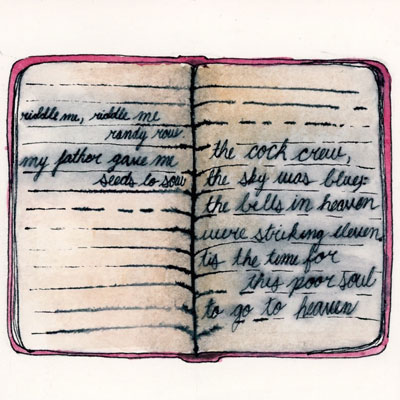 riddle me, riddle me
randy row
my father gave me
seeds to sow
the cock crew,
the sky was blue:
the bells in heaven
were striking eleven
tis the time for
this poor soul
to go to heaven